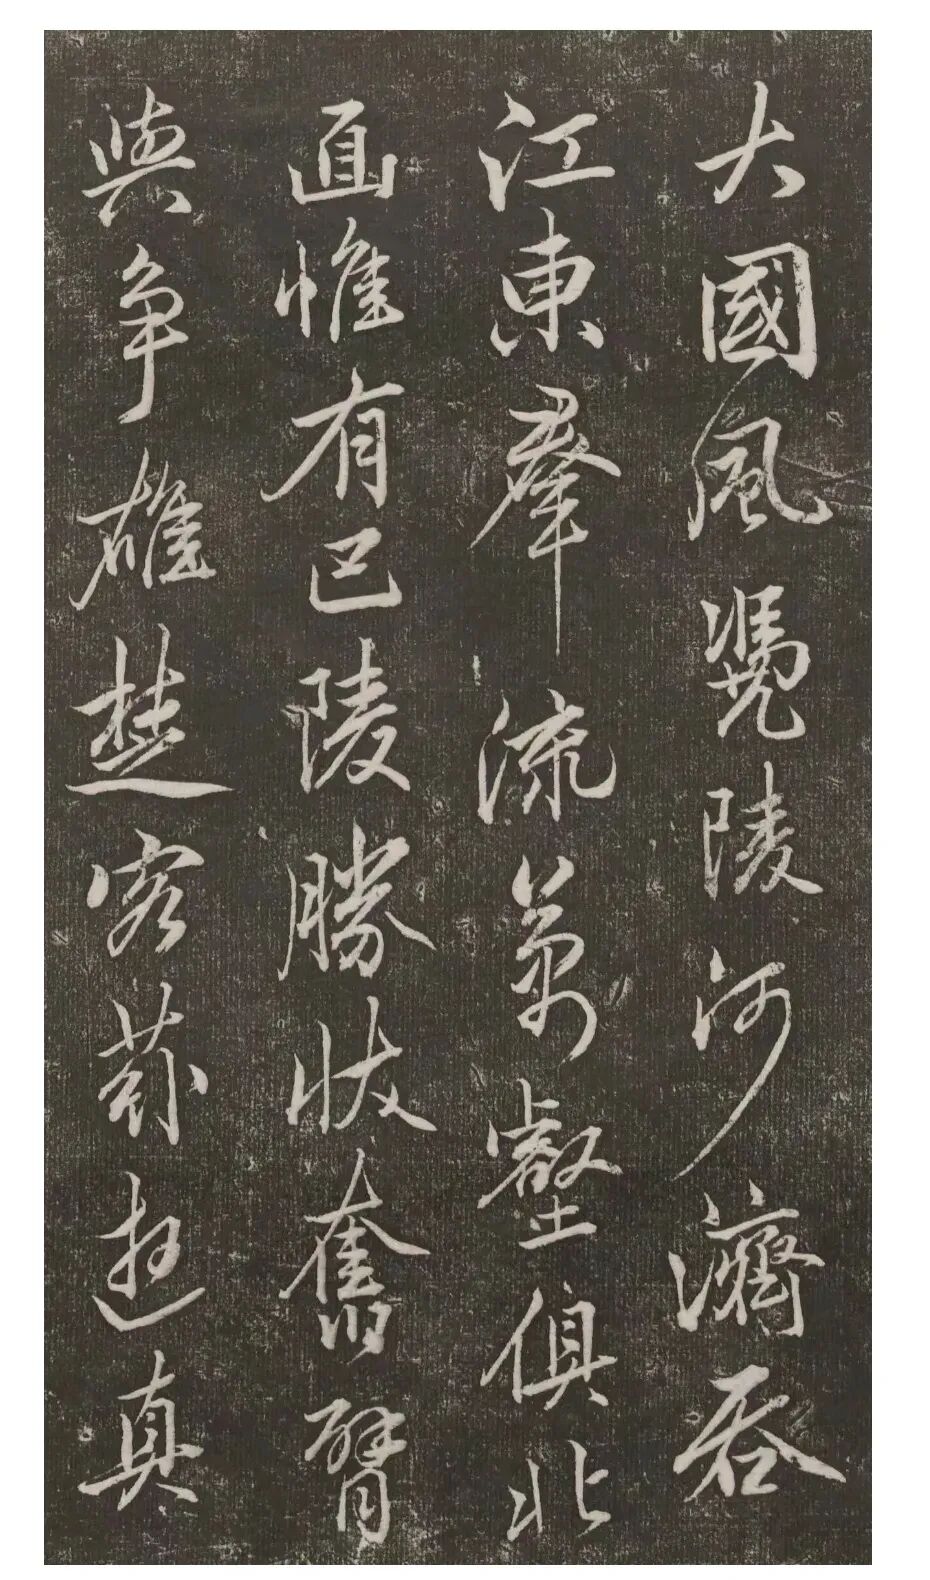 大國風憑陵河濟吞
江東羣流萬壑俱北
面惟有巴陵勝狀奮臂
與爭雄楚客蘇遊真